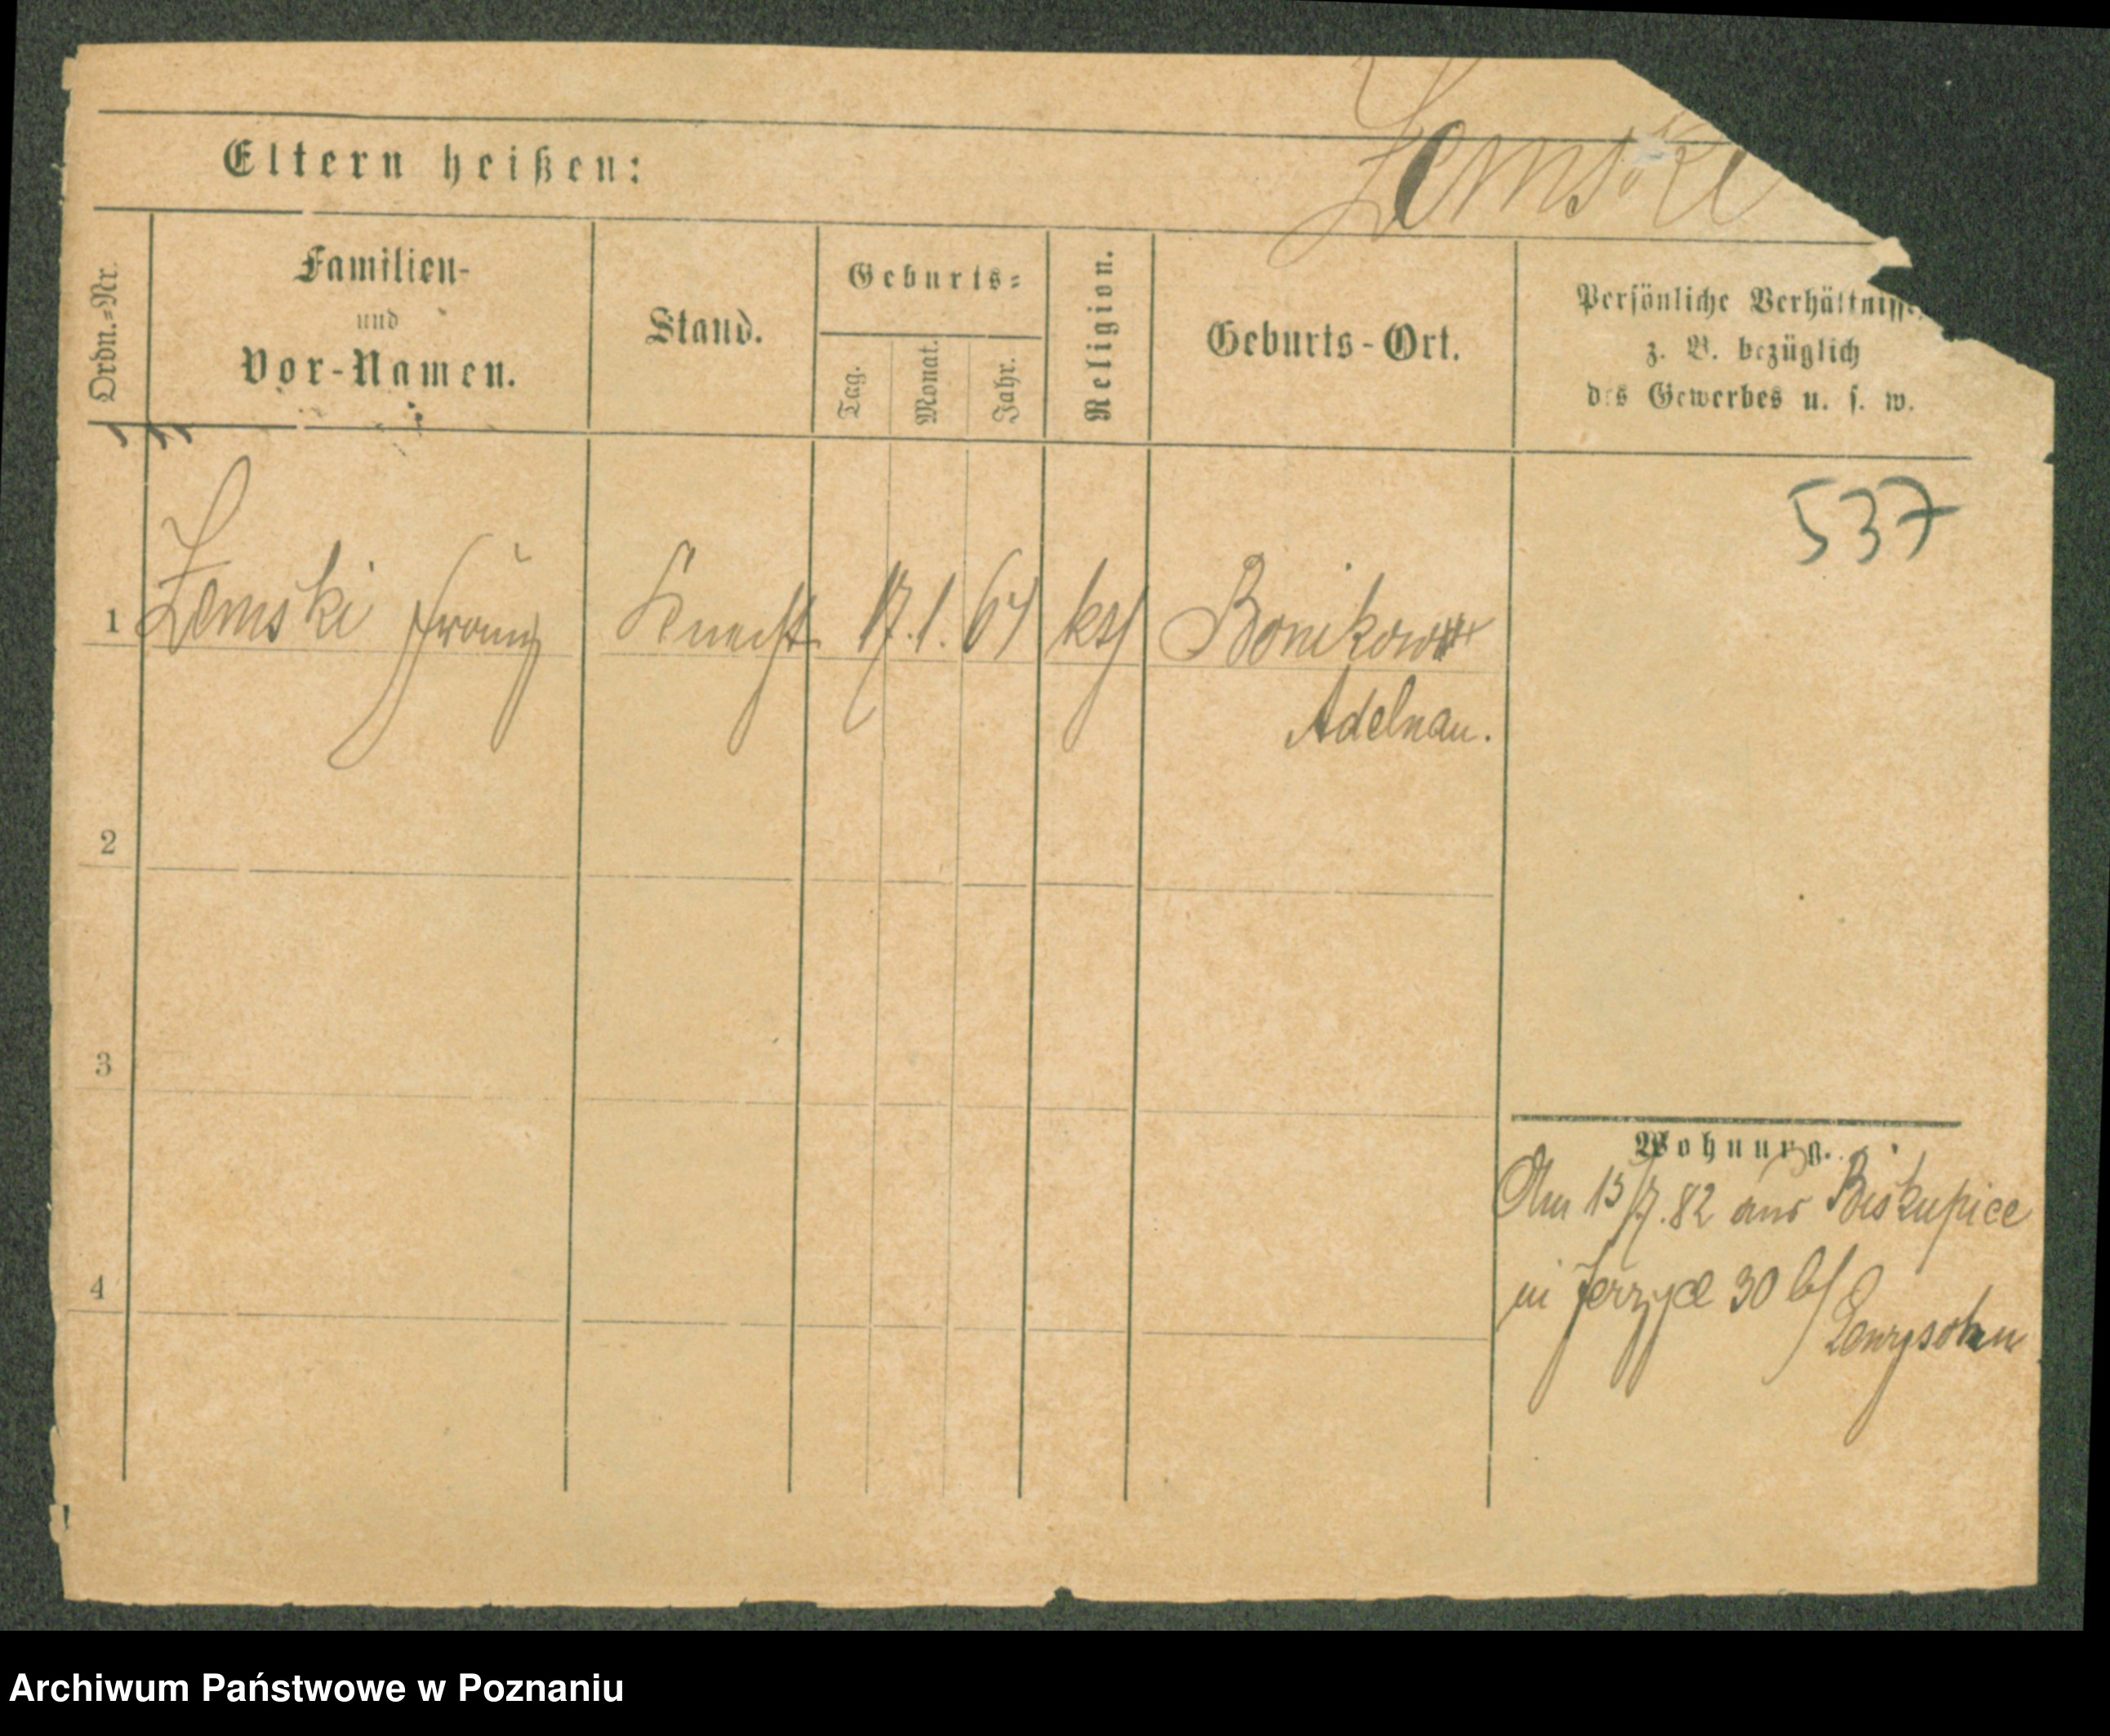 Lemski
Eltern heißen:
Ordn.-Nr.
Familien-
und
Vor-Namen.
Stand.
Geburts-
Tag.
Monat.
Jahr.
Religion.
Geburts-Ort.
Persönliche Verhältnisse
z. B. bezüglich
des Gewerbes u. s. w.
537
1 Lemski Franz Knecht 17. 1. 64 kth Bonikow
Adelnau.
2
3
4
Wohnung.
Am 15/7. 82 aus Biskupice
in Jerzyce 30 b/
Archiwum Państwowe w Poznaniu